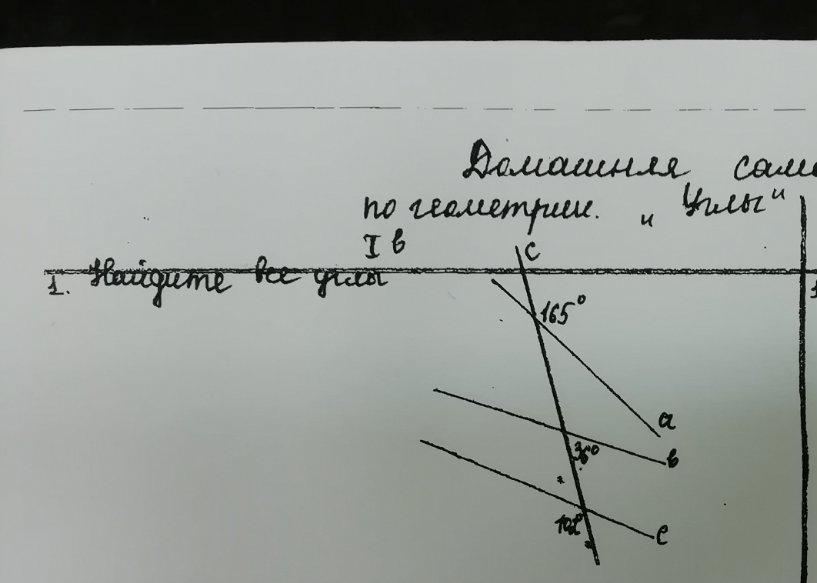 Домашняя само
по геометрии. „Углы"
I в
1. Найдите все углы
1
c
165°
a
36°
в
e